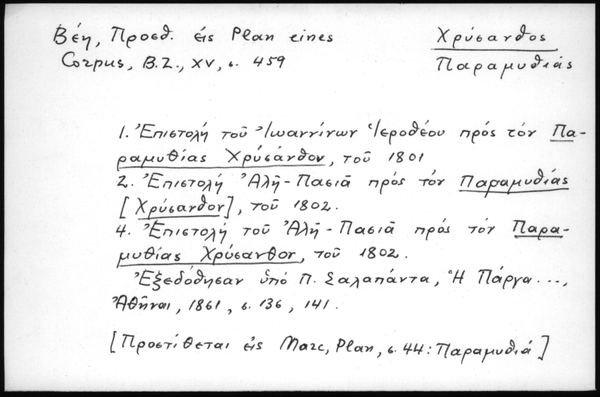 Βέη, Προσθ. εἰς Plan eines
Corpus, B.Z., XV, σ. 459
Χρύσανθος
Παραμυθιάς
1. Ἐπιστολή τοῦ Ἰωαννίνων Ἱεροθέου πρός τόν Πα-
ραμυθίας Χρύσανθον, τοῦ 1801
2. Ἐπιστολή Ἀλῆ-Πασιᾶ πρός τόν Παραμυθίας
[Χρύσανθον], τοῦ 1802.
4. Ἐπιστολή τοῦ Ἀλῆ-Πασιᾶ πρός τόν Παρα-
μυθίας Χρύσανθον, τοῦ 1802.
Ἐξεδόθησαν ὑπό Π. Σαλαπάντα, Ἡ Πάργα...,
Ἀθῆναι, 1861, σ. 136, 141.
[Προστίθεται εἰς Marc, Plan, σ. 44: Παραμυθιά]